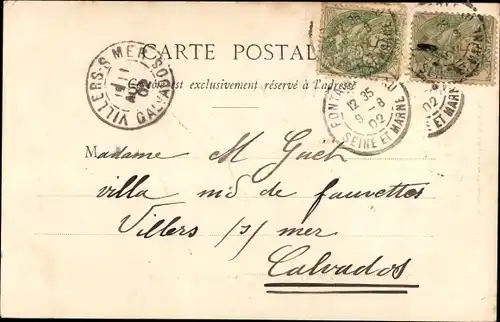 CARTE POSTALE
Ce côté est exclusivement réservé à l'adresse
VILLERS-S-MER CALVADOS
11
12 35
9 8
02
SEINE ET MARNE
02
ET MARNE
Madame M Guet
villa nid de fauvettes
Villers /s/ mer
Calvados